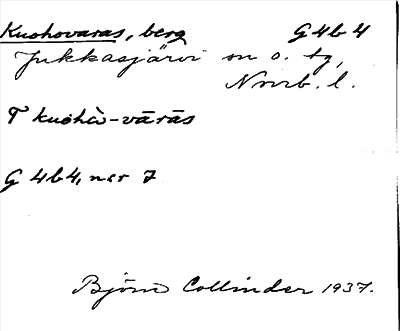 Kuohovaras, berg G4b4
Jukkasjärvi sn o. tg,
Norrb. l.
T kuōhɯ̀-vārās
G 4b4, ner 7
Björn Collinder 1937.